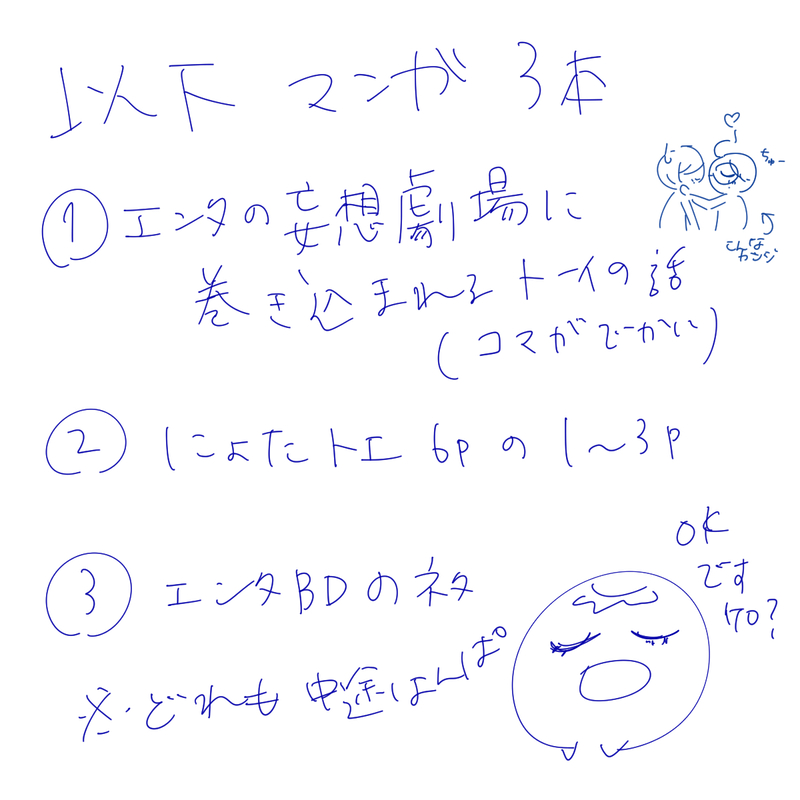 以下 マンガ 3本
① エンタの妄想劇場に
巻き込まれるトーイの話
(コマがでーかい)
ちゅー
こんな
カンジ
② にょたトエ 6pの1〜3p
③ エンタBDのネタ
※・どれも中途はんぱ。
OK
です